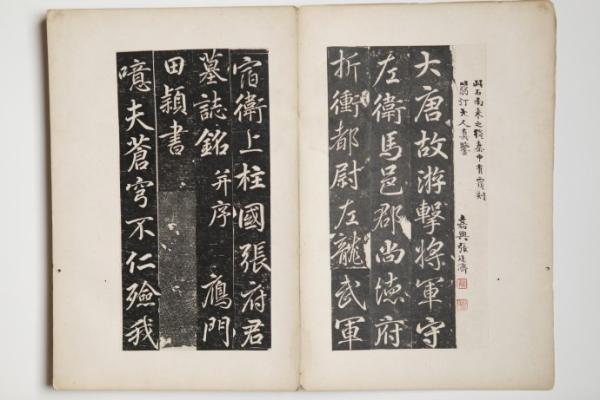 嘉興張廷濟
大唐故游擊將軍守
左衛馬邑郡尚德府
折衝都尉左龍武軍
宿衛上柱國張府君
墓誌銘 并序 鴈門
田穎書
噫夫蒼穹不仁殲我